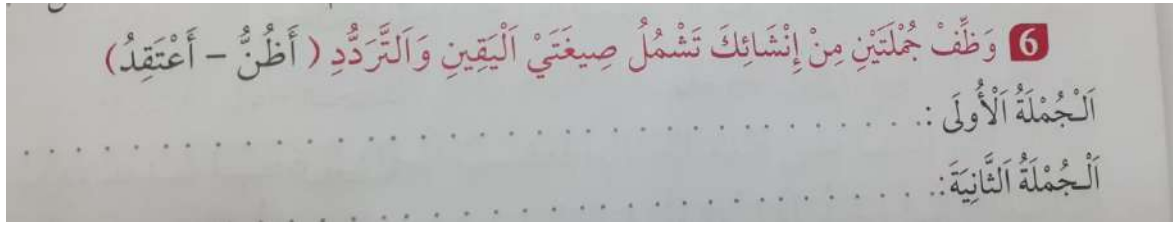 6 وَظِّفْ جُمْلَتَيْنِ مِنْ إِنْشَائِكَ تَشْمُلُ صِيغَتَيْ اَلْيَقِينِ وَاَلتَّرَدُّدِ ( أَظُنُّ – أَعْتَقِدُ )
اَلْجُمْلَةُ اَلْأُولَى : . . . . . . . . . . . . . . . . . . . . . . . . . . . . . .
اَلْجُمْلَةُ اَلثَّانِيَةَ : . . . . . . . . . . . . . . . . . . . . . . . . . . . . . .